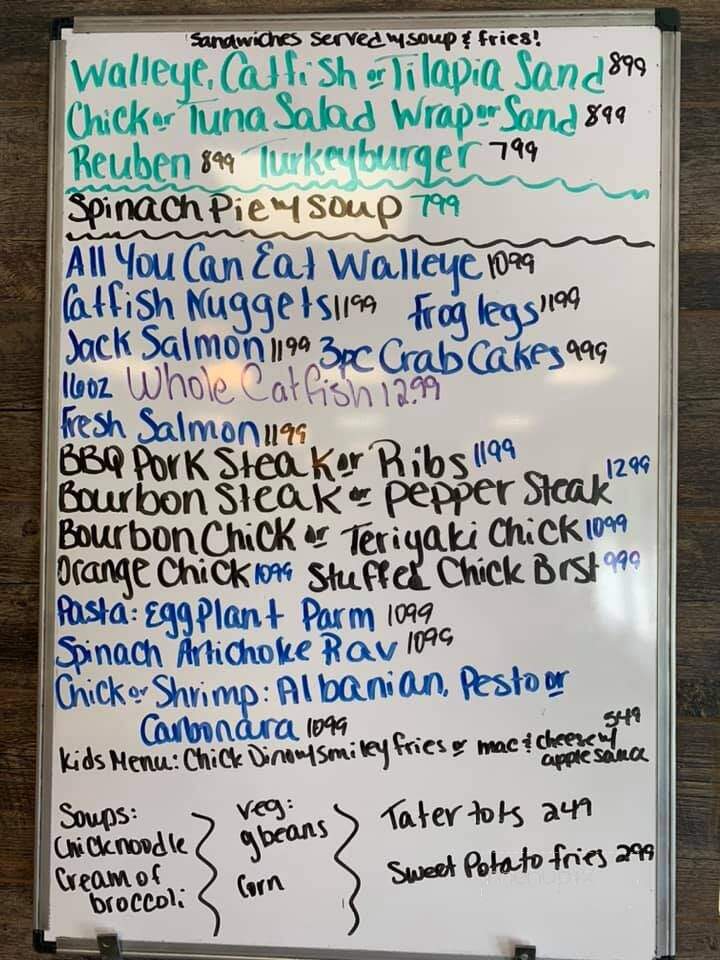 Sandwiches served w/ soup & fries!
Walleye, Catfish or Tilapia Sand 899
Chick or Tuna Salad Wrap or Sand 899
Reuben 899 Turkeyburger 799
Spinach Pie w/ soup 799
All You Can Eat Walleye 1099
Catfish Nuggets 1199 Frog legs 1199
Jack Salmon 1199 3pc Crab Cakes 999
16oz Whole Catfish 12.99
Fresh Salmon 1199
BBQ Pork Steak or Ribs 1199
Bourbon Steak or Pepper Steak 1299
Bourbon Chick or Teriyaki Chick 1099
Orange Chick 1099 Stuffed Chick Brst 999
Pasta: EggPlant Parm 1099
Spinach Artichoke Rav 1099
Chick or Shrimp: Albanian, Pesto or
Carbonara 1099
Kids Menu: Chick Dino w/ smiley fries or mac & cheese w/ 549
apple sauce
Soups:
Chicknoodle
Cream of
broccoli
Veg:
gbeans
Corn
Tater tots 249
Sweet Potato fries 299